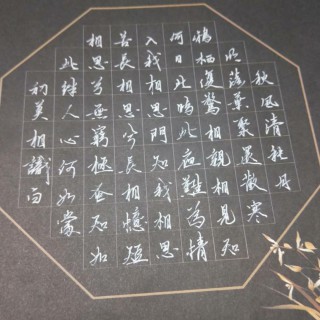 秋風清秋月
明落葉聚還散寒
鴉棲復驚相親相見知
何日此時此夜難為情
入我相思門知我相思
苦長相思兮長相憶短
相思兮無窮極早知如
此絆人心何如當
初莫相識